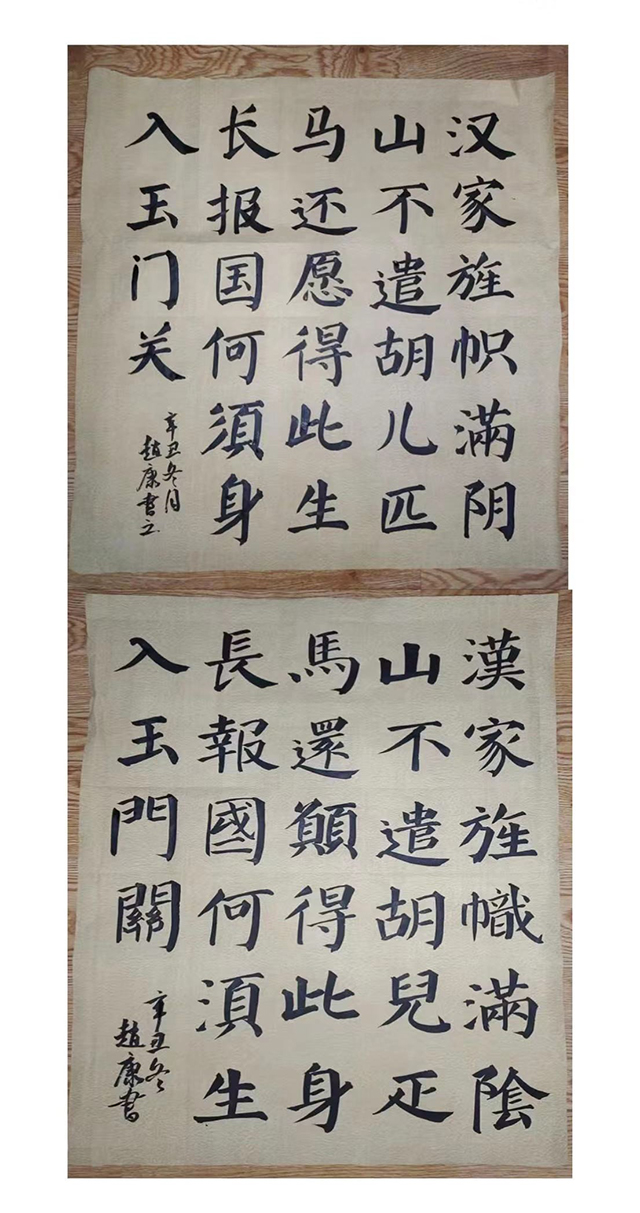 汉家旌帜滿阴
山不遣胡儿匹
马还愿得此生
长报国何須身
入玉门关
辛丑冬月
趙康書之
漢家旌幟滿陰
山不遣胡兒疋
馬還願得此身
長報國何湏生
入玉門關
辛丑冬
趙康書